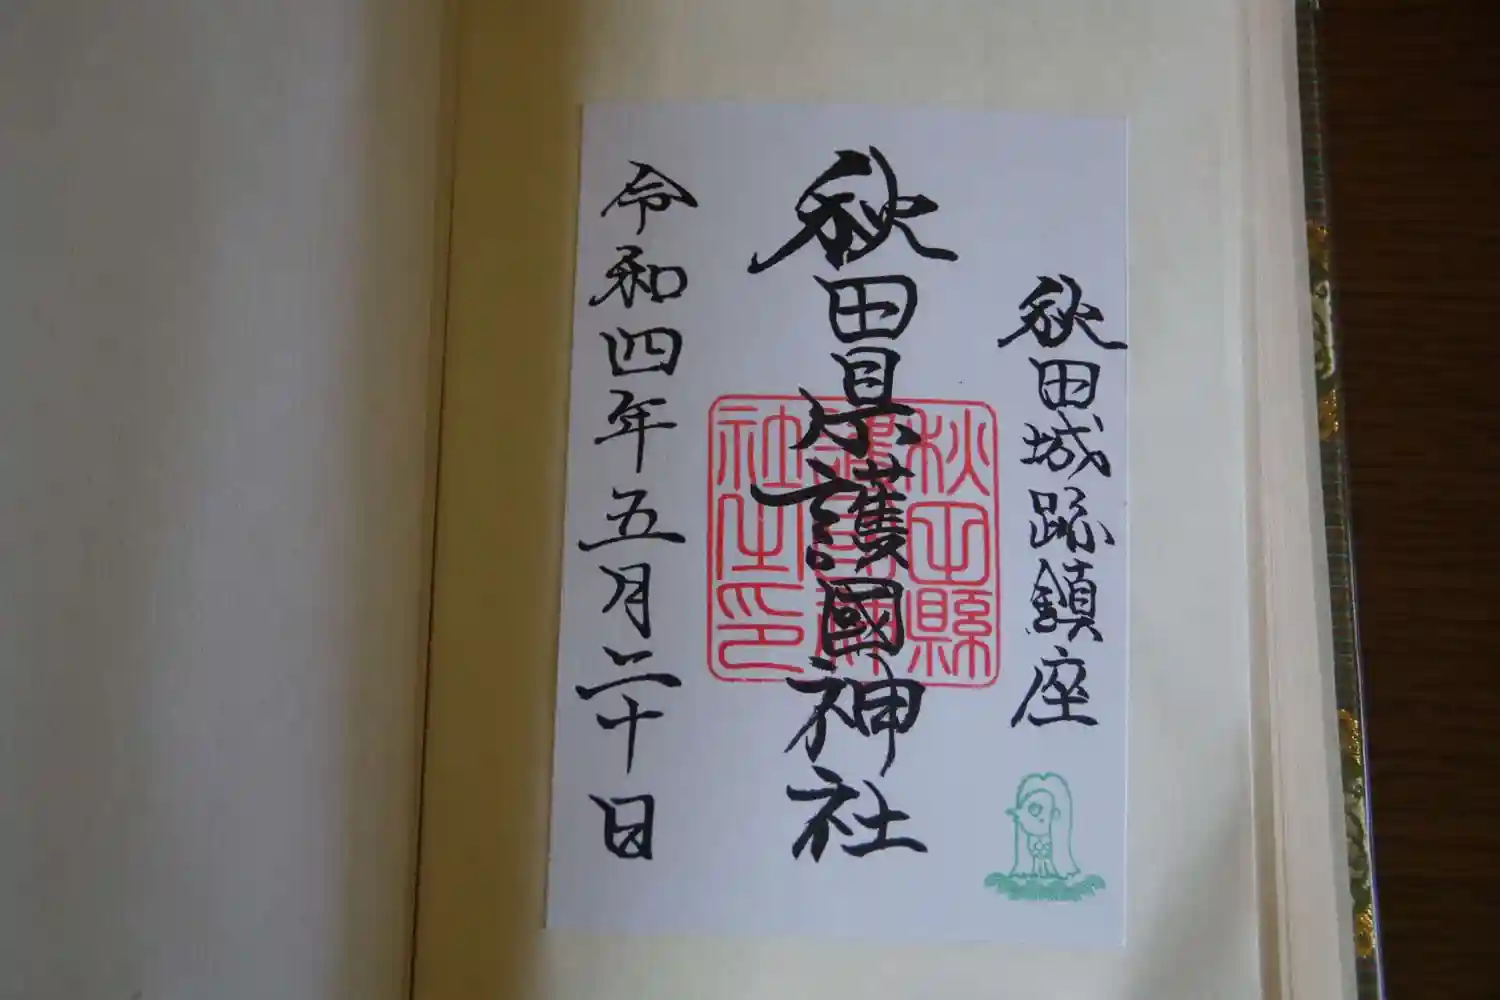 秋田城跡鎮座
秋田県護國神社
秋田縣
護國神
社之印
令和四年五月二十日